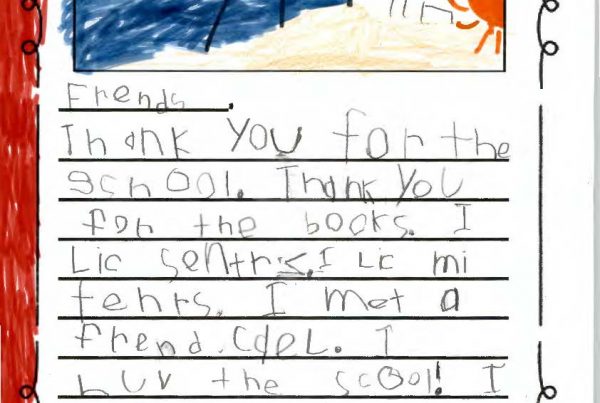 Frends.
Thank you for the
school. Thank you
for the books. I
Lic sentrs. I Lic mi
tehrs. I met a
frend. Cdel. I
luv the scool! I